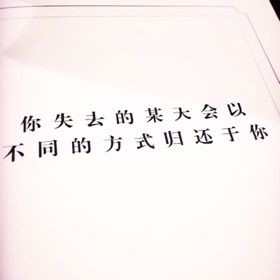 你失去的某天会以
不同的方式归还于你